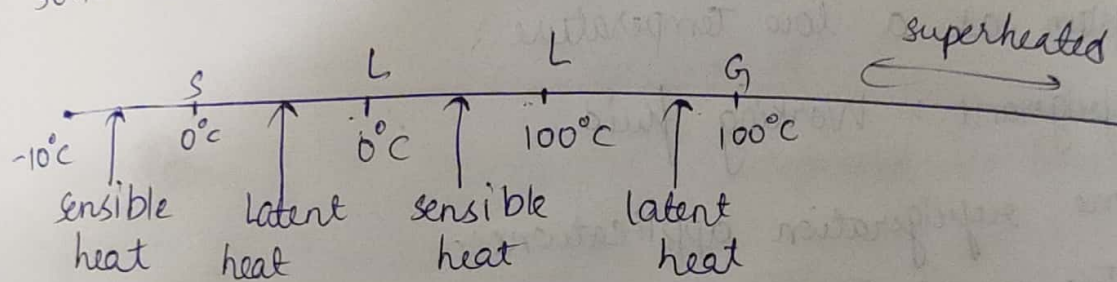 superheated
S L L G
-10°C 0°C 0°C 100°C 100°C
sensible heat
latent heat
sensible heat
latent heat